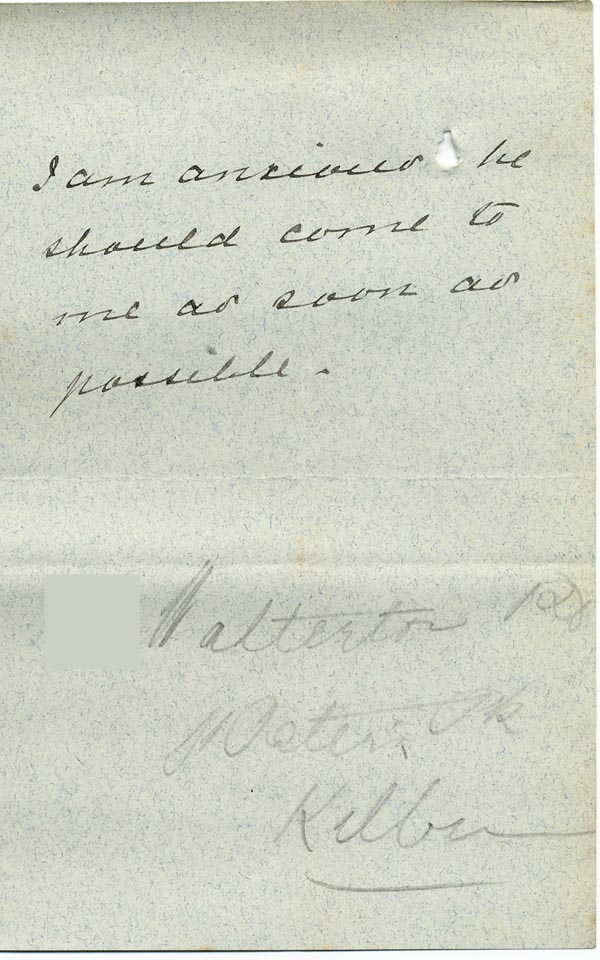 I am anxious he
should come to
me as soon as
possible.
Walterton Rd
St Peter's Pk
Kilbu